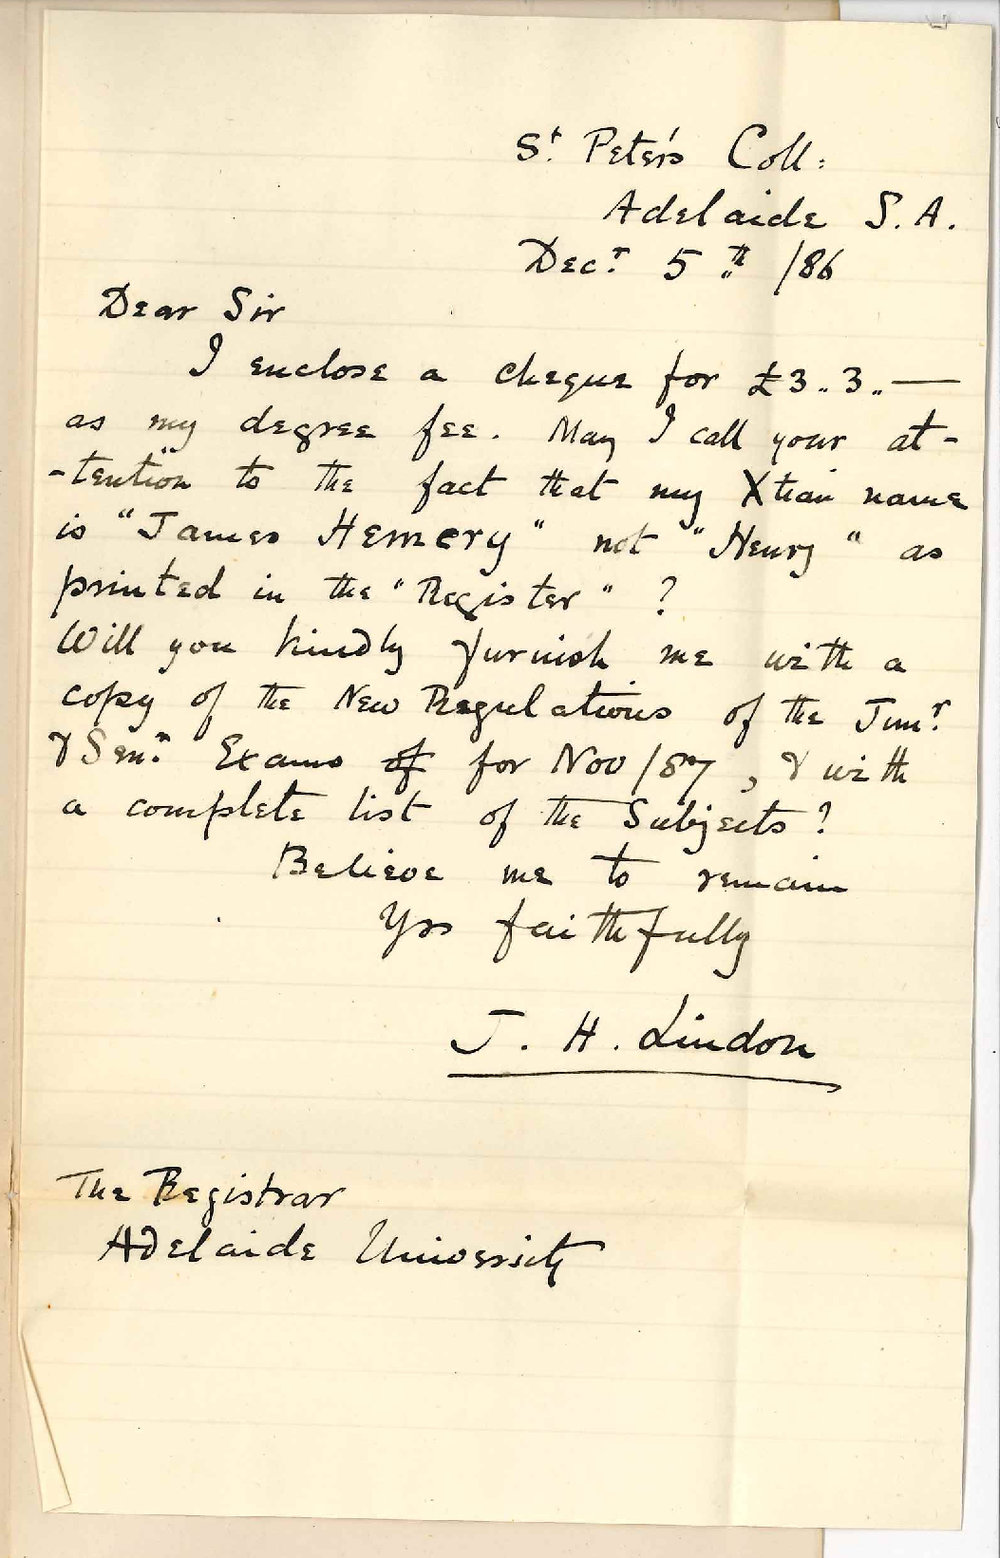 St. Peter's Coll:
Adelaide S.A.
Decr. 5th /86
Dear Sir
I enclose a cheque for £3.. 3.. —
as my degree fee. May I call your at-
-tention to the fact that my Xtian name
is "James Hemery" not "Henry" as
printed in the "Register" ?
Will you kindly furnish me with a
copy of the New Regulations of the Junr.
& Senr. Exams of for Nov /87, & with
a complete list of the Subjects ?
Believe me to remain
Yrs faithfully
J. H. Lindon
The Registrar
Adelaide University